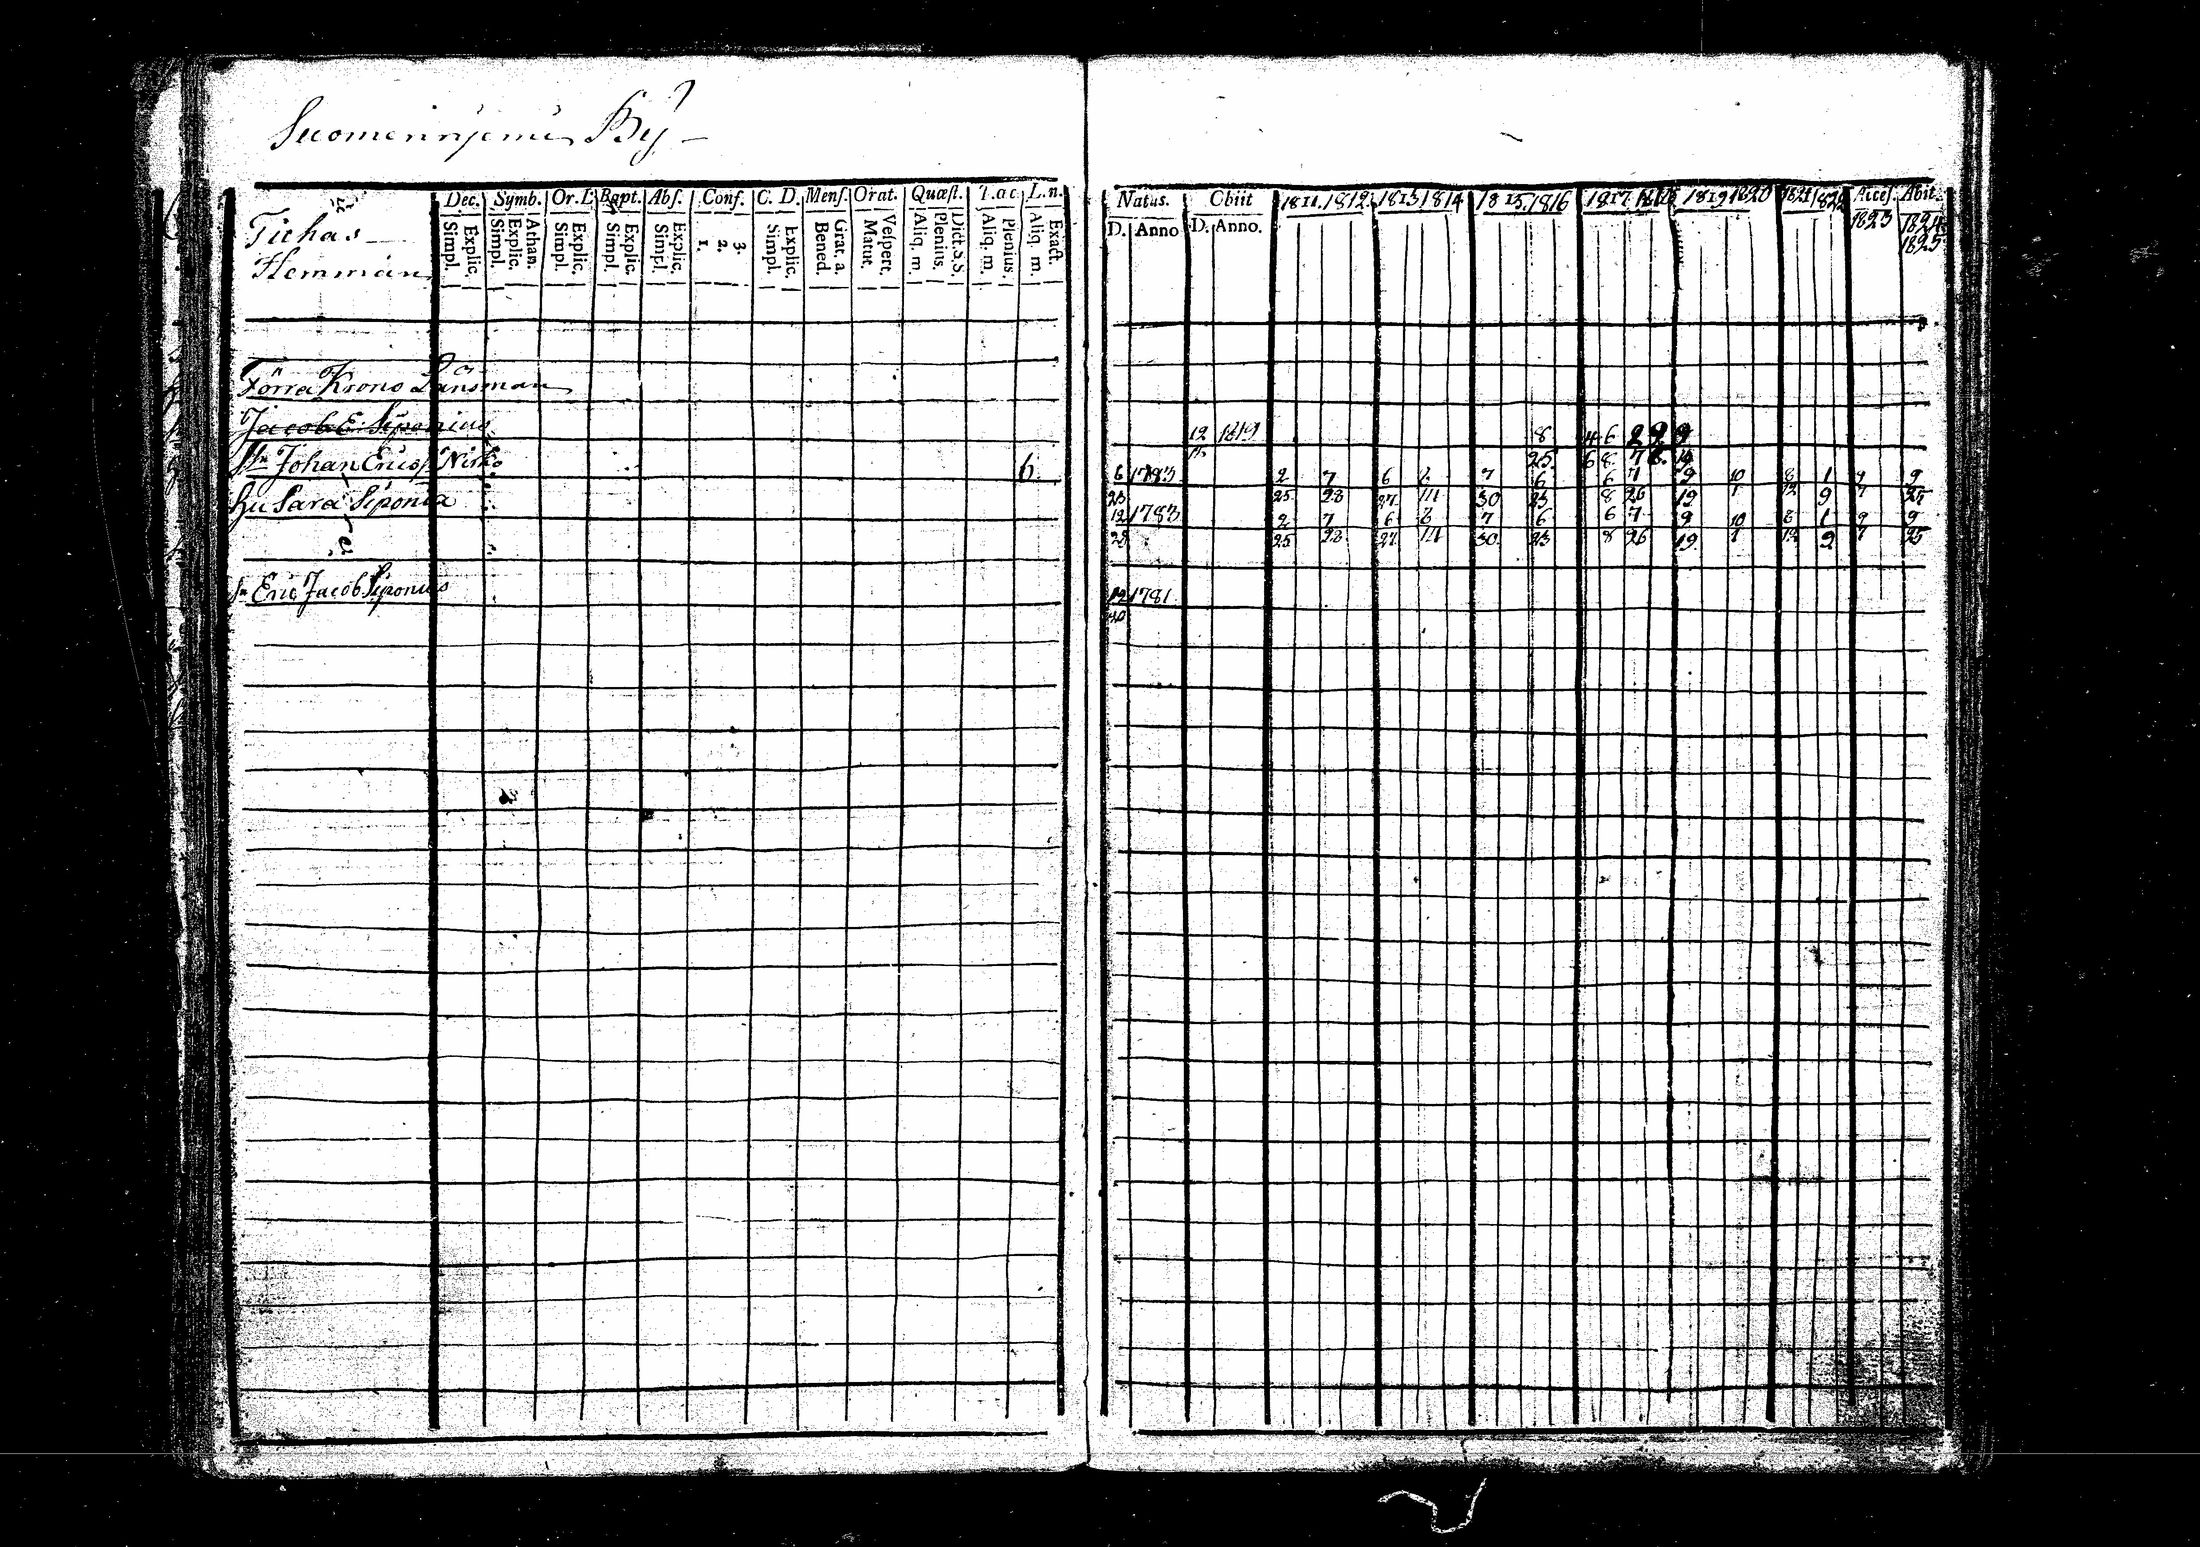 Suomenniemi By
Dec. Symb. Or. D. Bapt. Abs. Conf. C. D. Mens. Orat. Quæst. T. ac. L. n.
Simpl. Explic. Simpl. Explic. Athan. Simpl. Explic. Simpl. Explic. Simpl. Explic. 1. 2. 3. Simpl. Explic. Bened. Grat. a. Matut. Vespert. Aliq. m. Plenius. Dict. S. S. Aliq. m. Plenius. Aliq. m. Exact.
Tichas
Hemman
Förra Krono Länsman
Jacob E. Siponius
Johan Ericss Nisko 6
Hu Sara Siponia
Sn Eric Jacob Siponius
Natus. Obiit 1811. 1812. 1813 1814 1815. 1816 1817 1818 1819 1820 1821 1822 Acces. Abit.
D. Anno D. Anno. 1823 1824
1825
12 1819 8 4 6 2 9
25 6 8 7
6 1783 2 7 6 2 7 6 6 7 9 10 8 1 9 9
23 25 28 27 30 23 8 26 19 1 12 9 7 25
12 1783 2 7 6 2 7 6 6 7 9 10 8 1 9 9
25 28 27 30 23 8 26 19 1 12 9 7 25
12 1781
30